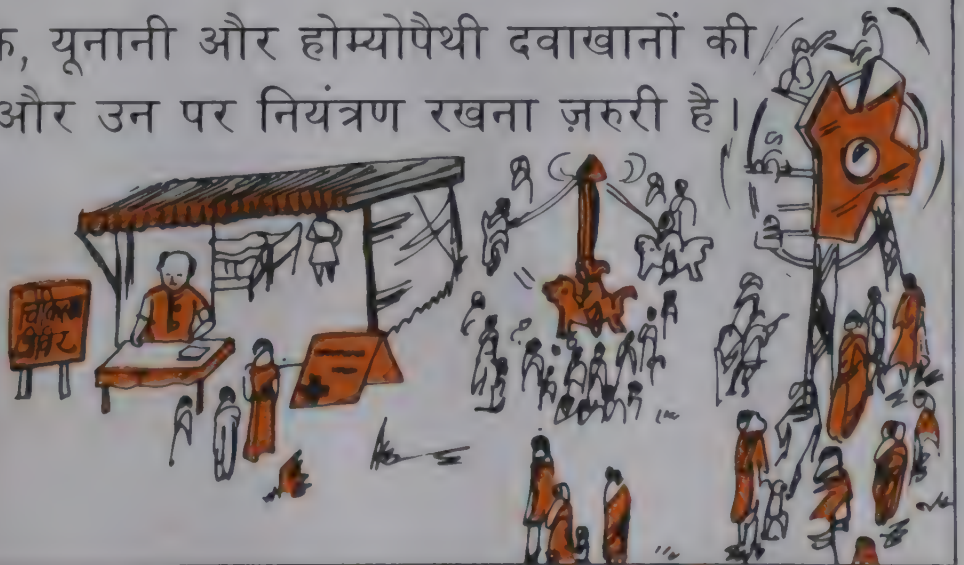 यूनानी और होम्योपैथी दवाखानों की
और उन पर नियंत्रण रखना ज़रुरी है।
चिकित्सा
शिविर